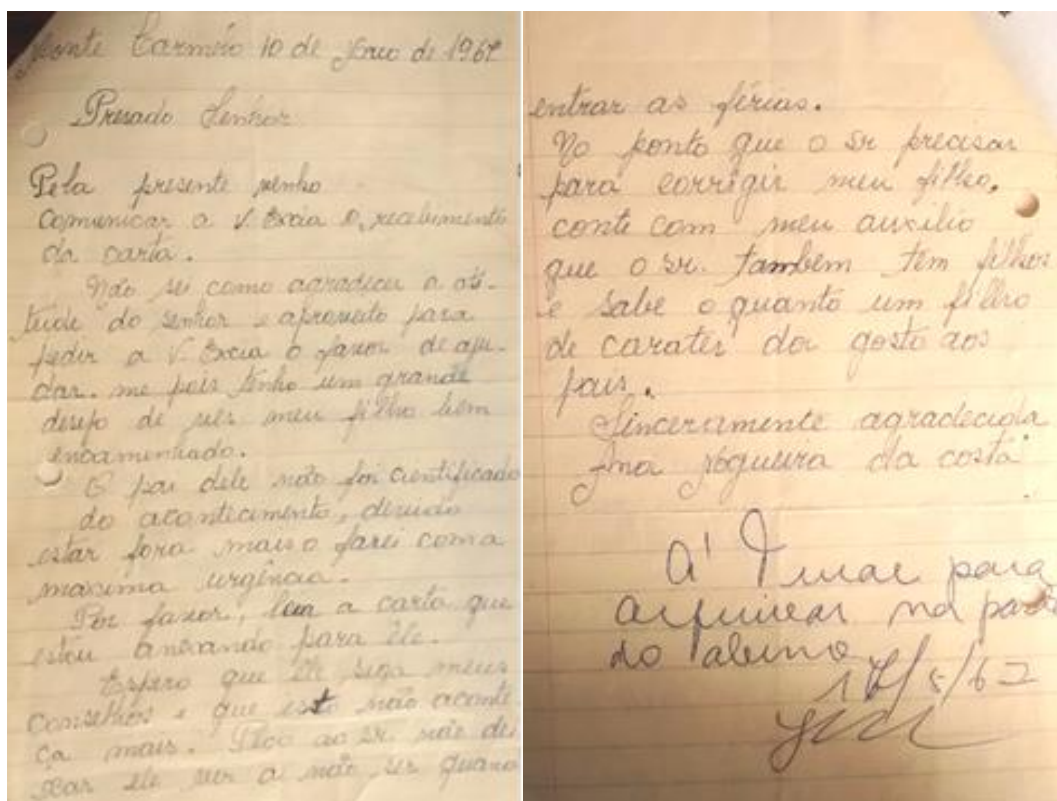 Monte Carmelo 10 de Maio de 1967
Presado Senhor
Pela presente venho
comunicar a V. Excia o recebimento
da carta.
Não sei como agradecer a ati-
tude do senhor e aproveito para
pedir a V. Excia o favor de aju-
dar-me pois tenho um grande
desejo de ver meu filho bem
encaminhado.
O pai dele não foi cientificado
do acontecimento, devido
estar fora mais o farei com a
maxima urgência.
Por favor, leia a carta que
estou anexando para ele.
Espero que ele siga meus
conselhos e que isto não aconte
ça mais. Peço ao Sr. não dei
xar ele vir a não ser quando
entrar as férias.
No ponto que o sr precisar
para corrigir meu filho,
conte com meu auxilio
que o sr. tambem tem filhos
e sabe o quanto um filho
de carater dar gosto aos
pais.
Sinceramente agradecida
Ana Nogueira da Costa
para
arquivar na pasta
do aluno
/5/67